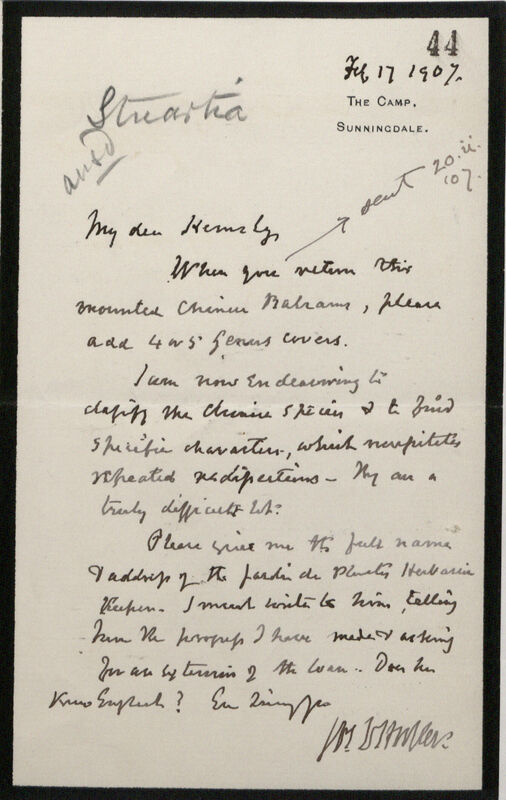 44
Feb 17 1907.
THE CAMP,
SUNNINGDALE.
Stuartia
ansd
sent 20.ii.
/07.
My dear Hemsley
When you return the
mounted Chinese Balsams, please
add 4 or 5 Genus covers.
I am now endeavouring to
classify the Chinese species & to find
specific characters, which necessitates
repeated redissections — They are a
truly difficult lot.
Please give me the full name
& address of the Jardin de Plantes Herbarium
Keeper. I must write to him, telling
him the progress I have made & asking
for an extension of the loan. Does he
know English? Ever sincy yrs
Jos D Hooker